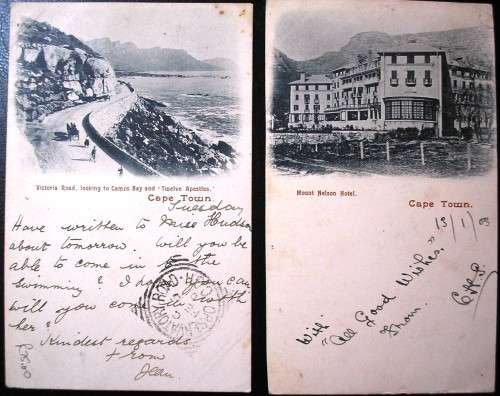 Victoria Road, looking to Camps Bay and 'Twelve Apostles.'
Cape Town.
Tuesday
Have written to Miss Hudson
about tomorrow. Will you be
able to come in to the
swimming? I do hope you can
will you come in with
her?
Kindest regards
from
Jean.
OBSERVATORY ROAD
Mount Nelson Hotel.
Cape Town.
13/1/03
With
"All Good Wishes."
From.